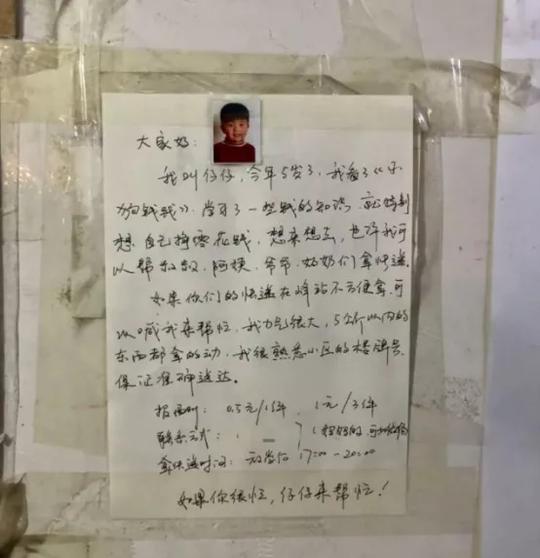 大家好：
我叫仔仔，今年5岁了，我看了《小
狗钱钱》，学习了一些钱的知识，就特别
想自己挣零花钱，想来想去，也许我可
以帮叔叔、阿姨、爷爷、奶奶们拿快递。
如果你们的快递在峰站不方便拿，可
以喊我来帮忙，我力气很大，5个斤以内的
东西都拿的动，我很熟悉小区的楼牌号，
保证准确送达。
报酬： 0.5元/1件、1元/3件
联系方式：
拿快递时间：放学后 17:00-20:00
如果你很忙，仔仔来帮忙！